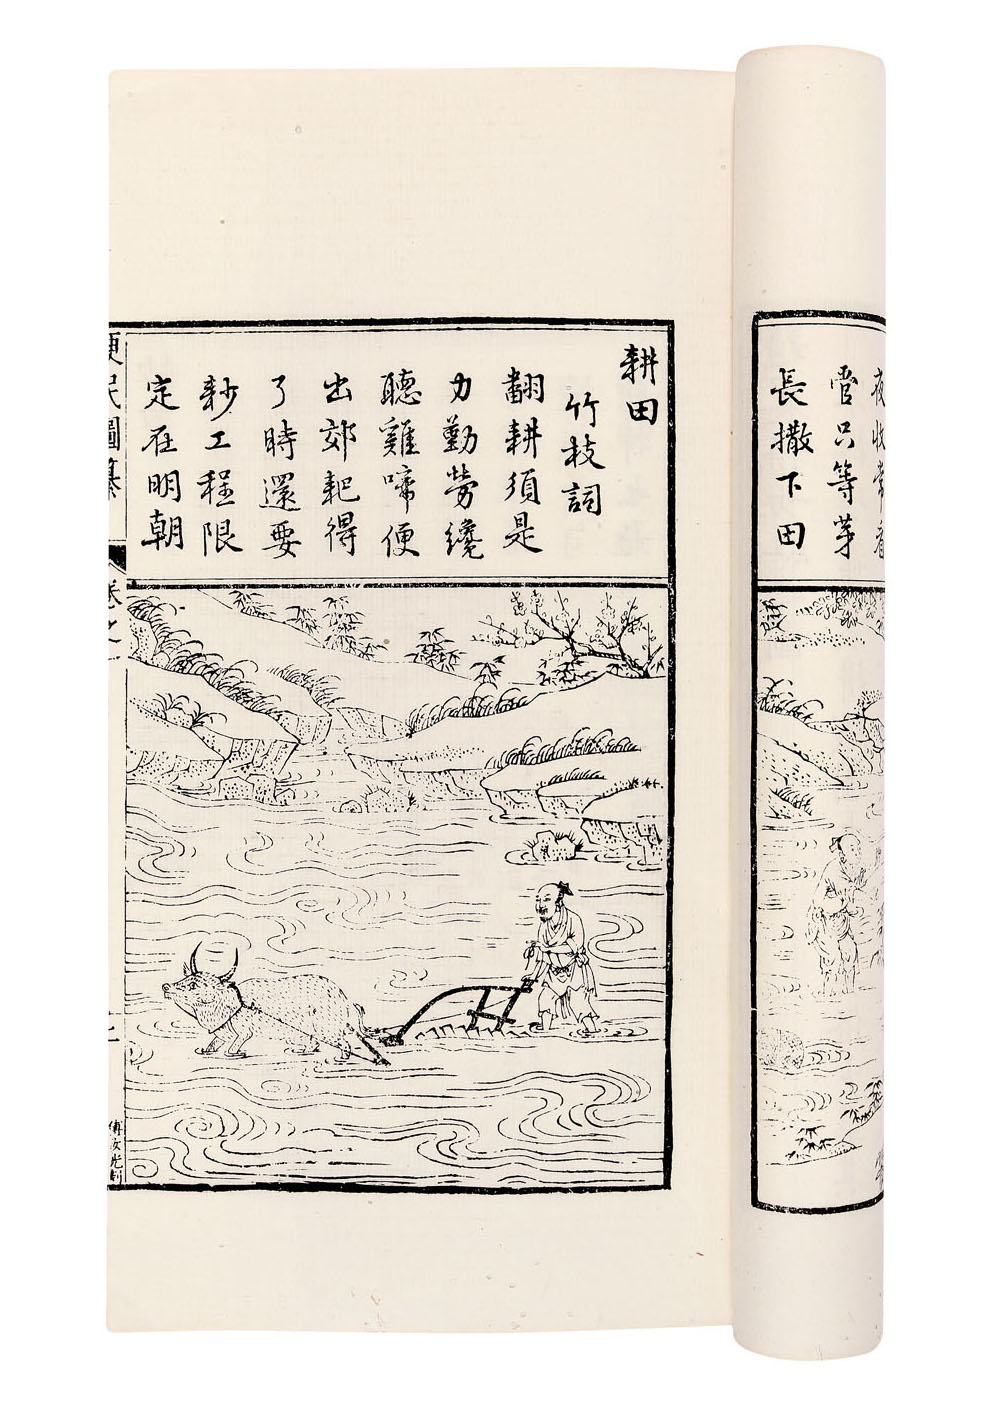 夜收常看
管只等芽
長撒下田
耕田
竹枝詞
翻耕須是
力勤勞纔
聽雞啼便
出郊耙得
了時還要
耖工程限
定在明朝
便民圖纂
卷之一
傅汝光刻